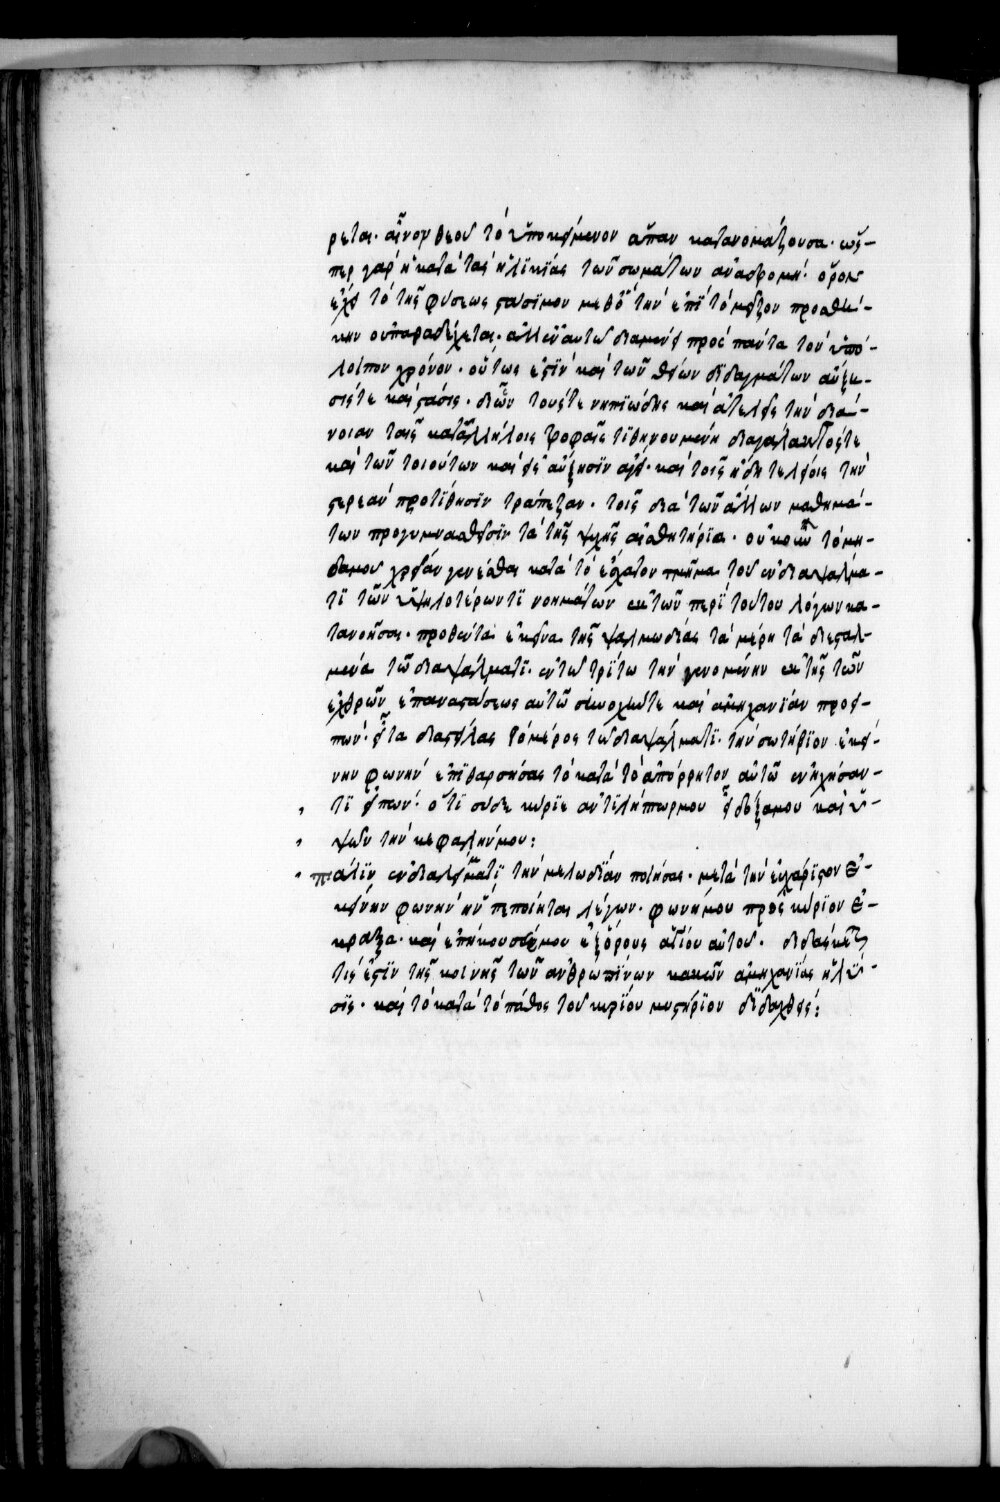 ρεται· αἶνον θεοῦ τὸ ὑποκείμενον ἅπαν κατονομάζουσα· ὥσ-
περ γὰρ ἡ κατὰ τὰς ἡλικίας τῶν σωμάτων ἀναδρομὴ· ὅρον
ἔχει τὸ τῆς φύσεως στάσιμον μεθ' ὃ τὴν ἐπὶ τὸ μεῖζον προσθή-
κην οὐ παραδέχεται· ἀλλ' ἐν αὐτῷ διαμένει πρὸς πάντα τὸν ὑπό-
λοιπον χρόνον· οὕτως ἐστὶν καὶ τῶν θείων διδαγμάτων αὔξη-
σίς τε καὶ στάσις· δι' ὧν τούς τε νηπιώδεις καὶ ἀτελεῖς τὴν διά-
νοιαν ταῖς καταλλήλοις τροφαῖς τιθηνουμένη διαγάλακτός τε
καὶ τῶν τοιούτων καὶ εἰς αὔξησιν ἄγει· καὶ τοῖς ἤδη τελείοις τὴν
στερεὰν προτίθησιν τράπεζαν· τοῖς διὰ τῶν ἄλλων μαθημά-
των προγυμνασθεῖσιν τὰ τῆς ψυχῆς αἰσθητήρια· οὐκοῦν τὸ μη-
δαμοῦ χρείαν γενέσθαι κατὰ τὸ ἔσχατον τμῆμα τοῦ ἐν διαψάλμα-
τι τῶν ὑψηλοτέρων τι νοημάτων ἐκ τῶν περὶ τούτου λόγων κα-
τανοῆσαι· προθεῖται ἐκεῖνα τῆς ψαλμωδίας τὰ μέρη τὰ διεσταλ-
μένα τῷ διαψάλματι· ἐν τῷ τρίτῳ τὴν γενομένην ἐκ τῆς τῶν
ἐχθρῶν ἐπαναστάσεως αὐτῷ συνοχήν τε καὶ ἀμηχανίαν προσει-
πών· εἶτα διαστείλας τὸ μέρος τῷ διαψάλματι· τὴν σωτήριον ἐκεί-
νην φωνὴν ἐπιθαρσήσας τὸ κατὰ τὸ ἀπόρρητον αὐτῷ ἐνηχήσαν-
τι εἰπών· ὅτι σὺ δὲ κύριε ἀντιλήπτωρ μου εἶ δόξα μου καὶ ὑ-
ψῶν τὴν κεφαλήν μου:
πάλιν ἐν διαψάλματι τὴν μελωδίαν ποιήσας· μετὰ τὴν εὐχάριστον ἐ-
κείνην φωνὴν ἣν πεποίηται λέγων· φωνῇ μου πρὸς κύριον ἐ-
κραξα· καὶ ἐπήκουσέ μου ἐξ ὄρους ἁγίου αὐτοῦ· διδάσκει
τίς ἐστιν τῆς κοινῆς τῶν ἀνθρωπίνων κακῶν ἀμηχανίας ἡ λύ-
σις· καὶ τὸ κατὰ τὸ πάθος τοῦ κυρίου μυστήριον διδαχθεὶς: